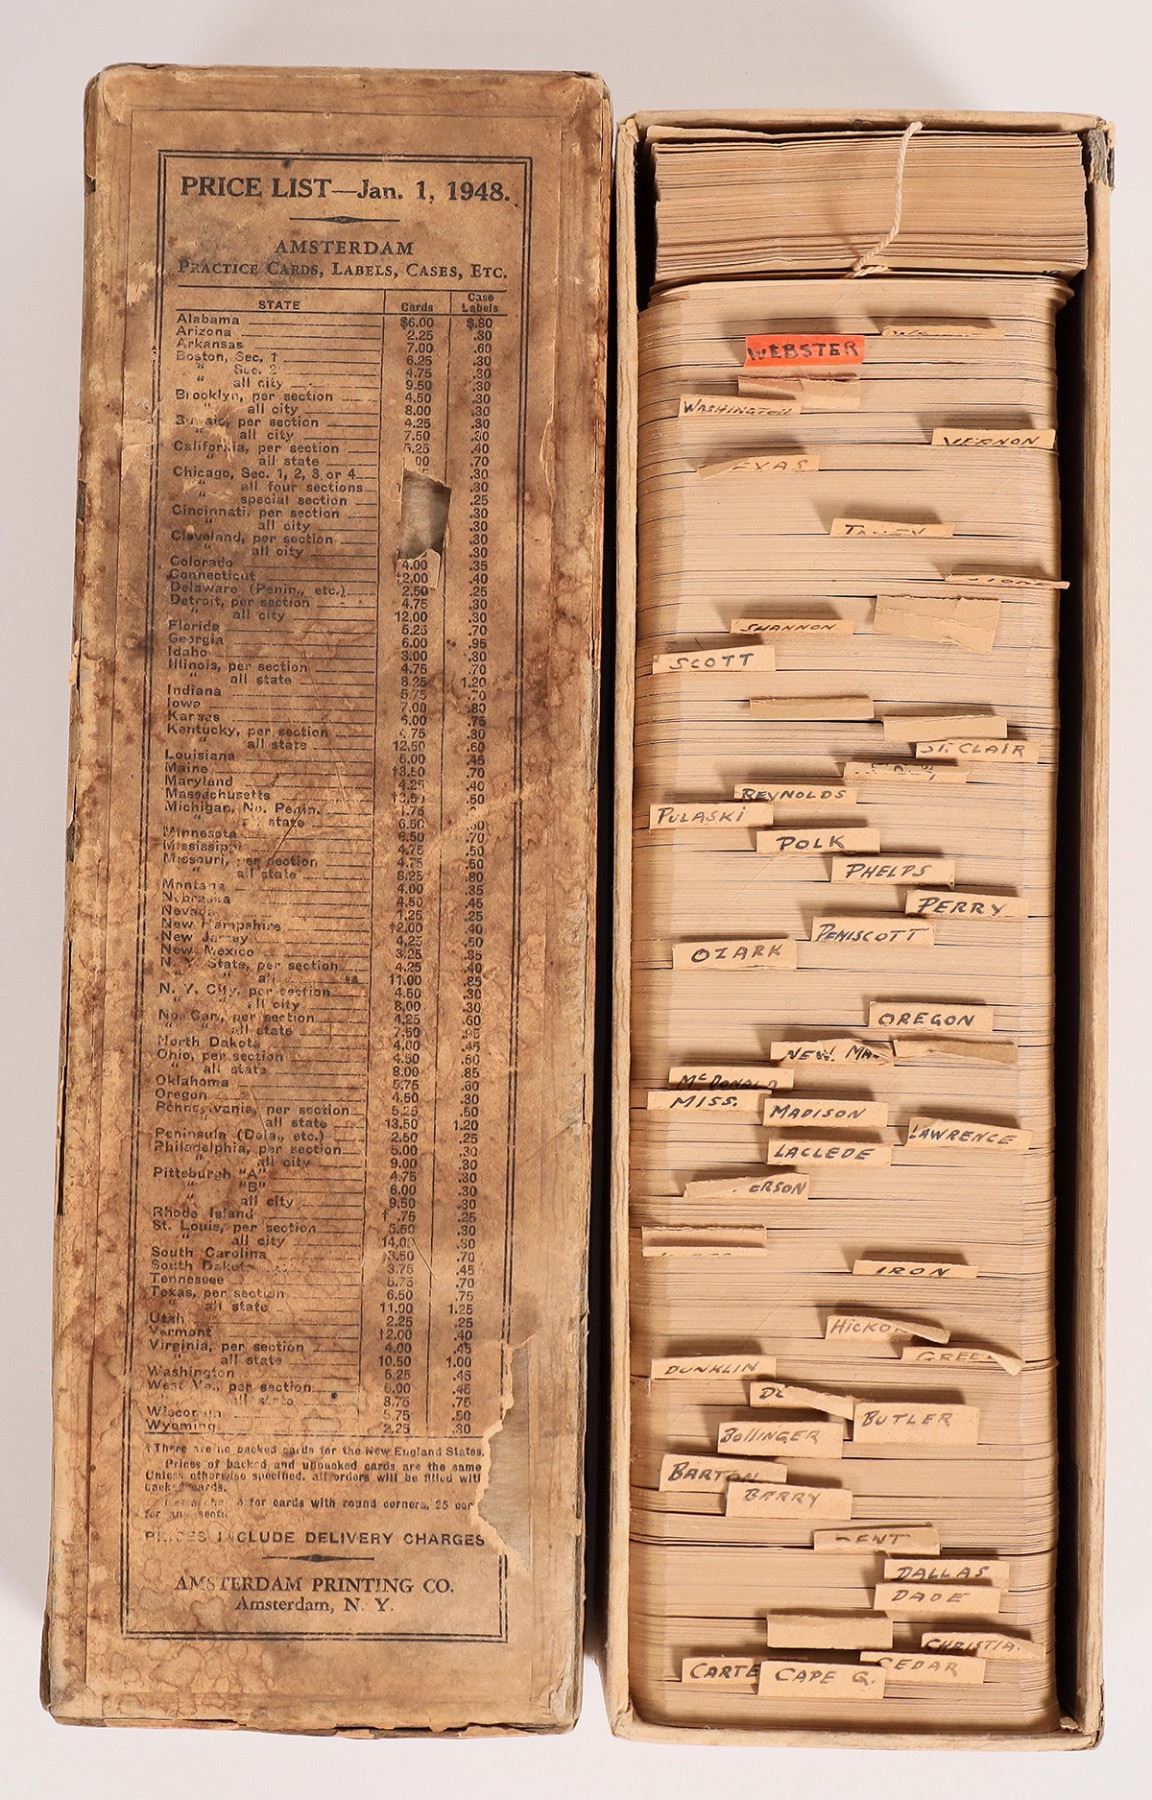 PRICE LIST—Jan. 1, 1948.
AMSTERDAM
PRACTICE CARDS, LABELS, CASES, ETC.
STATE Cards Case Labels
Alabama $6.00 $.80
Arizona 2.25 .30
Arkansas 7.00 .60
Boston, Sec. 1 6.25 .30
" Sec. 2 4.75 .30
" all city 9.50 .30
Brooklyn, per section 4.50 .30
" all city 8.00 .30
per section 4.25 .30
" all city 7.50 .30
California, per section 5.25 .40
" all state .00 .70
Chicago, Sec. 1, 2, 3 or 4 .30
" all four sections .30
" special section .25
Cincinnati, per section .30
" all city .30
Cleveland, per section .30
" all city .30
Colorado 4.00 .35
Connecticut †2.00 .40
Delaware (Penin., etc.) 2.50 .25
Detroit, per section 4.75 .30
" all city 12.00 .30
Florida 5.25 .70
Georgia 6.00 .95
Idaho 3.00 .30
Illinois, per section 4.75 .70
" all state 8.25 1.20
Indiana 5.75 .70
Iowa 7.00 .80
Kansas 6.00 .75
Kentucky, per section 4.75 .30
" all state 12.50 .60
Louisiana 5.00 .45
Maine †3.50 .70
Maryland 4.25 .40
Massachusetts .50
Michigan, No. Penin. .75
state 6.50
Minnesota 6.50 .70
Mississippi 4.75 .50
Missouri, per section 4.75 .50
" all state 8.25 .80
Montana 4.00 .35
Nebraska 4.50 .45
Nevada 1.25 .25
New Hampshire †2.00 .40
New Jersey 4.25 .50
New Mexico 3.25 .35
N. Y. State, per section 4.25 .40
all 11.00 .85
N. Y. City, per section 4.50 .30
" all city 8.00 .30
No. Car., per section 4.25 .60
" all state 7.50
North Dakota 4.00 .45
Ohio, per section 4.50 .50
" all state 8.00 .85
Oklahoma 5.75 .60
Oregon 4.50 .30
Pennsylvania, per section 5.25 .50
all state 13.50 1.20
Peninsula (Dela., etc.) 2.50 .25
Philadelphia, per section 5.00 .30
" all city 9.00 .30
Pittsburgh "A" 4.75 .30
" "B" 6.00 .30
" all city 9.50 .30
Rhode Island .75 .25
St. Louis, per section 5.50 .30
" all city 14.00 .30
South Carolina 3.50 .70
South Dakota 3.75 .45
Tennessee 5.75 .70
Texas, per section 6.50 .75
" all state 11.00 1.25
Utah 2.25 .25
Vermont †2.00 .40
Virginia, per section 4.00 .45
" all state 10.50 1.00
Washington 5.25 .45
West Va., per section 5.00 .45
all state 8.75 .75
Wisconsin 5.75 .50
Wyoming 2.25 .30
†There are no backed cards for the New England States.
Prices of backed and unbacked cards are the same
Unless otherwise specified, all orders will be filled with
backed cards.
for cards with round corners, 25
for any
PRICES INCLUDE DELIVERY CHARGES
AMSTERDAM PRINTING CO.
Amsterdam, N. Y.
WEBSTER
WASHINGTON
VERNON
EXAS
SHANNON
SCOTT
ST. CLAIR
REYNOLDS
PULASKI
POLK
PHELPS
PERRY
PEMISCOTT
OZARK
OREGON
NEW. MA.
McDONALD
MISS.
MADISON
LAWRENCE
LACLEDE
ERSON
IRON
HICKO
GREE
DUNKLIN
BUTLER
BOLLINGER
BARTON
BARRY
DENT
DALLAS
DADE
CHRISTIA.
CEDAR
CARTE
CAPE G.